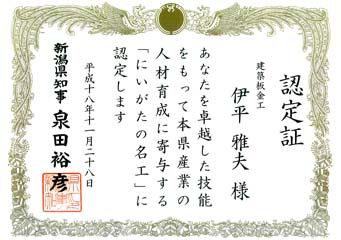 認定証
建築板金工
伊平 雅夫 様
あなたを卓越した技能
をもって本県産業の
人材育成に寄与する
「にいがたの名工」に
認定します
平成十八年十一月二十八日
新潟県知事 泉田裕彦